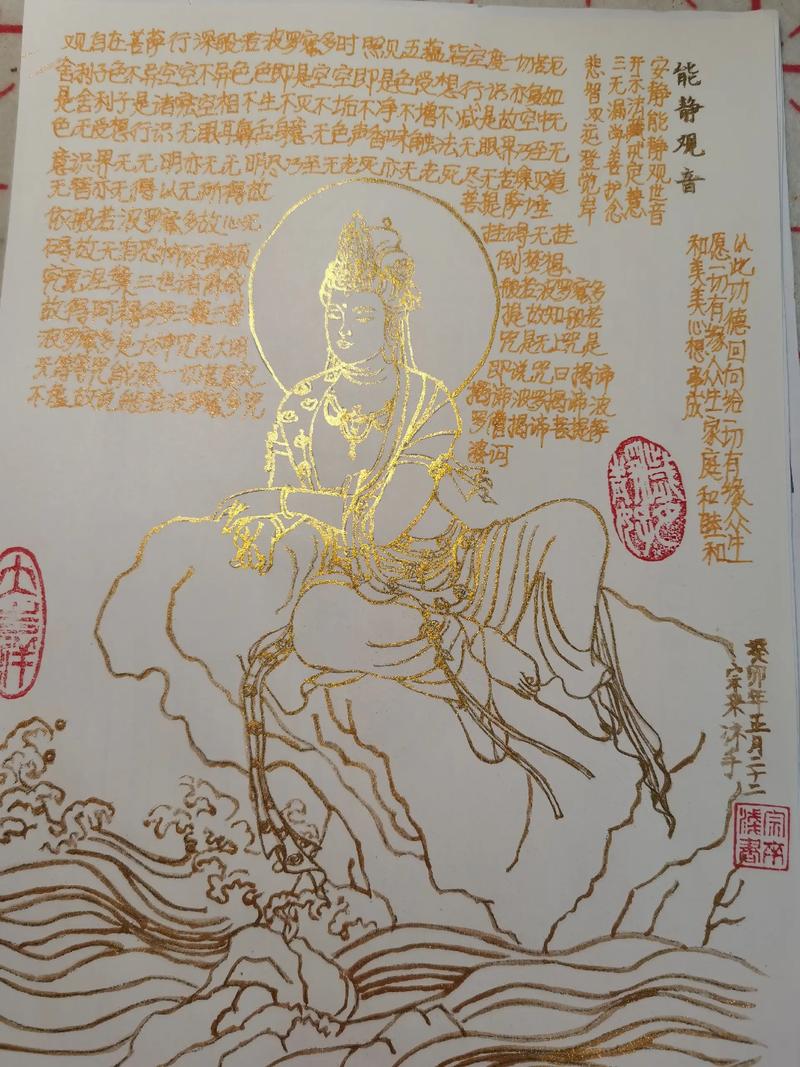 观自在菩萨行深般若波罗蜜多时照见五蕴皆空度一切苦厄
舍利子色不异空空不异色色即是空空即是色受想行识亦复如
是舍利子是诸法空相不生不灭不垢不净不增不减是故空中无
色无受想行识无眼耳鼻舌身意无色声香味触法无眼界乃至无
意识界无无明亦无无明尽乃至无老死亦无老死尽无苦集灭道
无智亦无得以无所得故 菩提萨埵
依般若波罗蜜多故心无 挂碍无挂
碍故无有恐怖远离颠 倒梦想
究竟涅槃三世诸佛依 般若波罗蜜多
故得阿耨多罗三藐三菩 提故知般若
波罗蜜多是大神咒是大明 咒是无上咒是
无等等咒能除一切苦真实 即说咒曰揭谛
不虚故说般若波罗蜜多咒 揭谛波罗揭谛波
罗僧揭谛菩提萨
婆诃
能静观音
安静能静观世音
开示法藏戒定慧
三无漏学善护念
悲智双运登觉岸
以此功德回向给一切有缘众生
愿一切有缘众生家庭和睦和
和美美心想事成
癸卯年正月二十二